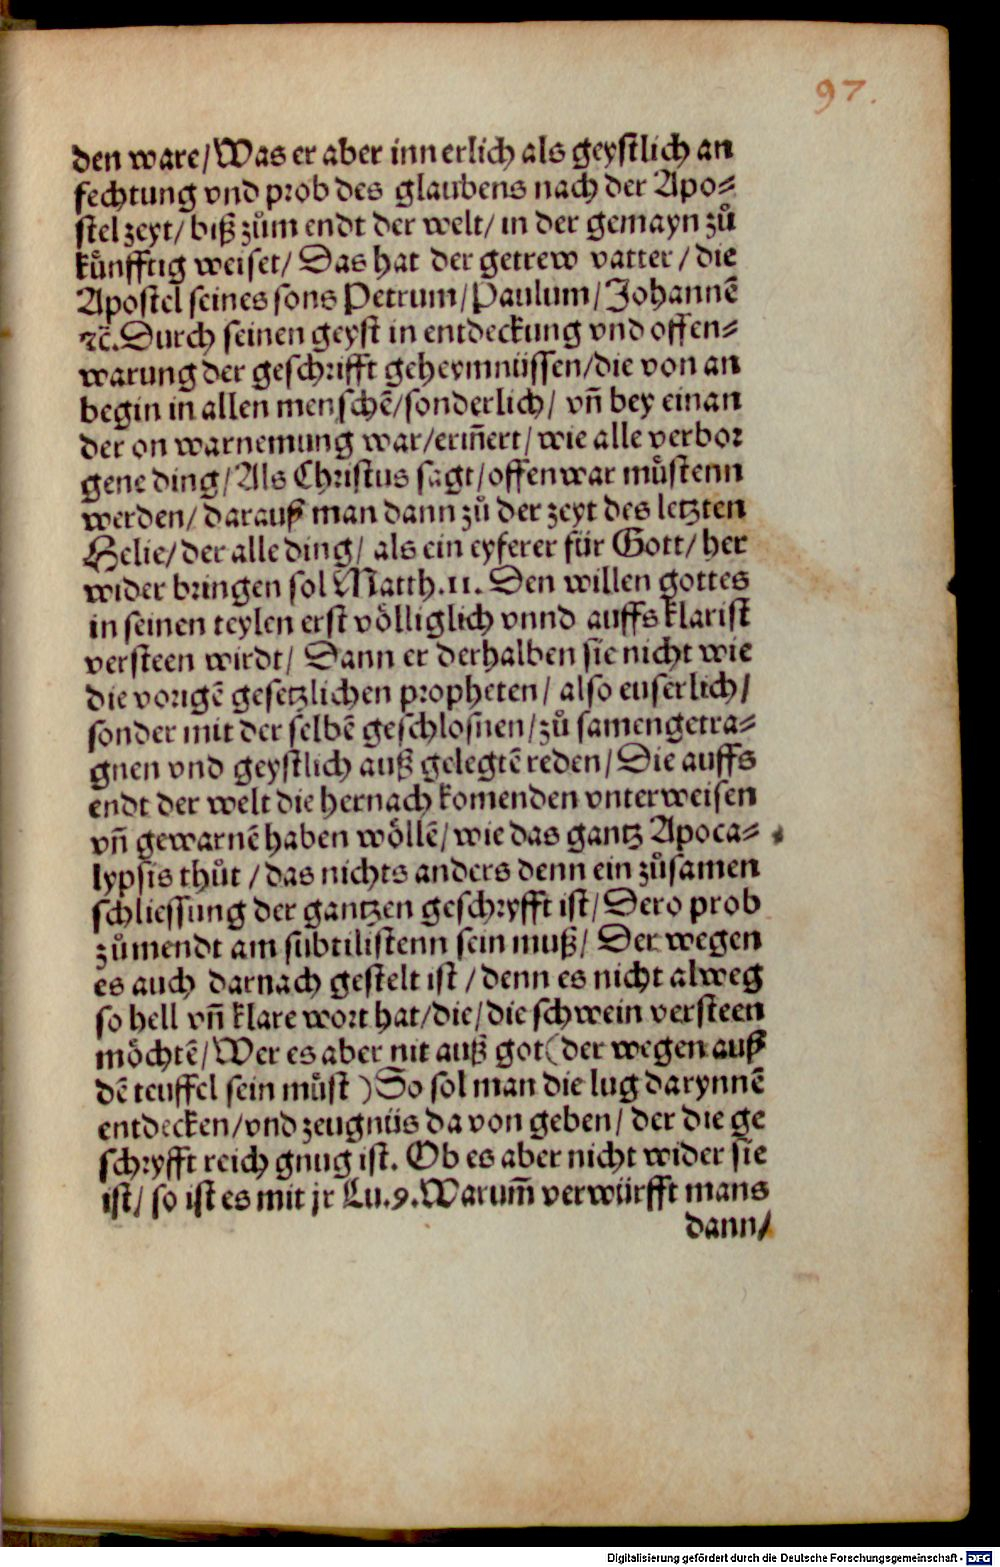 97.
den ware/Was er aber innerlich als geystlich an
fechtung vnd prob des glaubens nach der Apo⸗
stel zeyt/ biß zům endt der welt/ in der gemayn zů
kůnfftig weiset/ Das hat der getrew vatter/die
Apostel seines sons Petrum/Paulum/Johannē
ꝛc̄. Durch seinen geyst in entdeckung vnd offen⸗
warung der geschrifft geheymnüssen/die von an
begin in allen menschē/sonderlich/ vn̄ bey einan
der on warnemung war/erin̄ert/wie alle verbor
gene ding/Als Christus sagt/offenwar můstenn
werden/ darauß man dann zů der zeyt des letzten
Helie/der alle ding/ als ein eyferer für Gott/her
wider bringen sol Matth.11. Den willen gottes
in seinen teylen erst völliglich vnnd auffs klarist
versteen wirdt/ Dann er derhalben sie nicht wie
die vorigē gesetzlichen propheten/ also euserlich/
sonder mit der selbē geschlosnen/zů samengetra⸗
gnen vnd geystlich auß gelegtē reden/Die auffs
endt der welt die hernach komenden vnterweisen
vn̄ gewarnē haben wöllē/wie das gantz Apoca⸗
lypsis thůt/das nichts anders denn ein zůsamen
schliessung der gantzen geschryfft ist/Dero prob
zůmendt am subtilistenn sein muß/ Der wegen
es auch darnach gestelt ist/denn es nicht alweg
so hell vn̄ klare wort hat/die/die schwein versteen
möchtē/Wer es aber nit auß got(der wegen auß
dē teuffel sein můst )So sol man die lug darynnē
entdecken/vnd zeugnüs da von geben/ der die ge
schryfft reich gnug ist. Ob es aber nicht wider sie
ist/ so ist es mit jr Lu.9.Warum̄ verwürfft mans
dann/
Digitalisierung gefördert durch die Deutsche Forschungsgemeinschaft - DFG